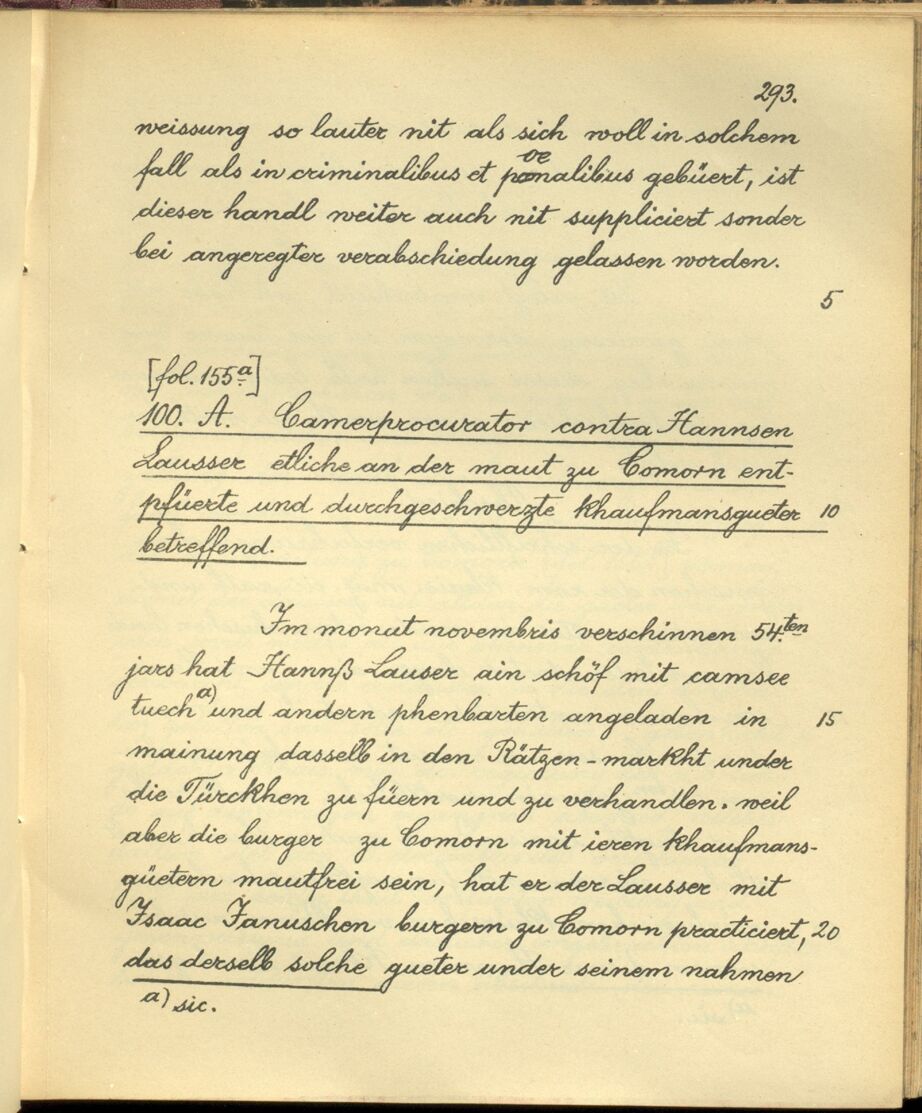 293.
weissung so lauter nit als sich woll in solchem
fall als in criminalibus et poenalibus gebüert, ist
dieser handl weiter auch nit suppliciert sonder
bei angeregter verabschiedung gelassen worden.
5
[fol. 155a]
100. A. Camerprocurator contra Hannsen
Lausser etliche an der maut zu Comorn ent-
pfüerte und durchgeschwerzte khaufmansgueter 10
betreffend.
Im monat novembris verschinnen 54.ten
jars hat Hannß Lauser ain schöf mit camsee
tuech a) und andern phenbarten angeladen in 15
mainung dasselb in den Rätzen-markht under
die Türckhen zu füern und zu verhandlen. weil
aber die burger zu Comorn mit ieren khaufmans-
güetern mautfrei sein, hat er der Lausser mit
Isaac Januschen burgern zu Comorn practiciert, 20
das derselb solche gueter under seinem nahmen
a) sic.